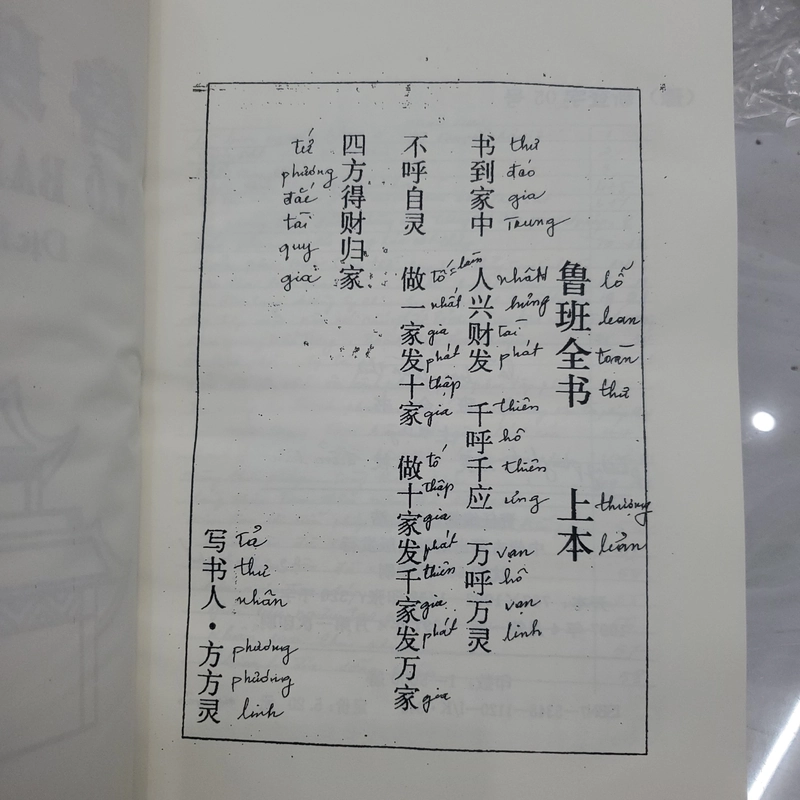 鲁班全书 上本
lỗ ban toàn thư thượng bản
书到家中 人兴财发 千呼千应 万呼万灵
thư đáo gia trung nhân hưng tài phát thiên hô thiên ứng vạn hô vạn linh
不呼自灵 做一家发十家 做十家发千家发万家
tố = làm nhất gia phát thập gia tố thập gia phát thiên gia phát gia
四方得财归家
tứ phương đắc tài quy gia
写书人·方方灵
tả thư nhân phương phương linh